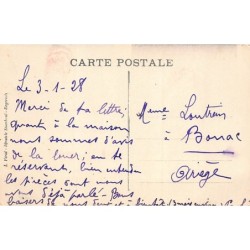 CARTE POSTALE
Le 3-1-28
Merci de ta lettre;
quant à la maison
nous sommes d'avis
de la louer, en te
réservant, bien entendu
les pièces dont nous
nous déjà parlé - Bons
baisers de nous
Mme Loutrau
à
Bonac
Ariège